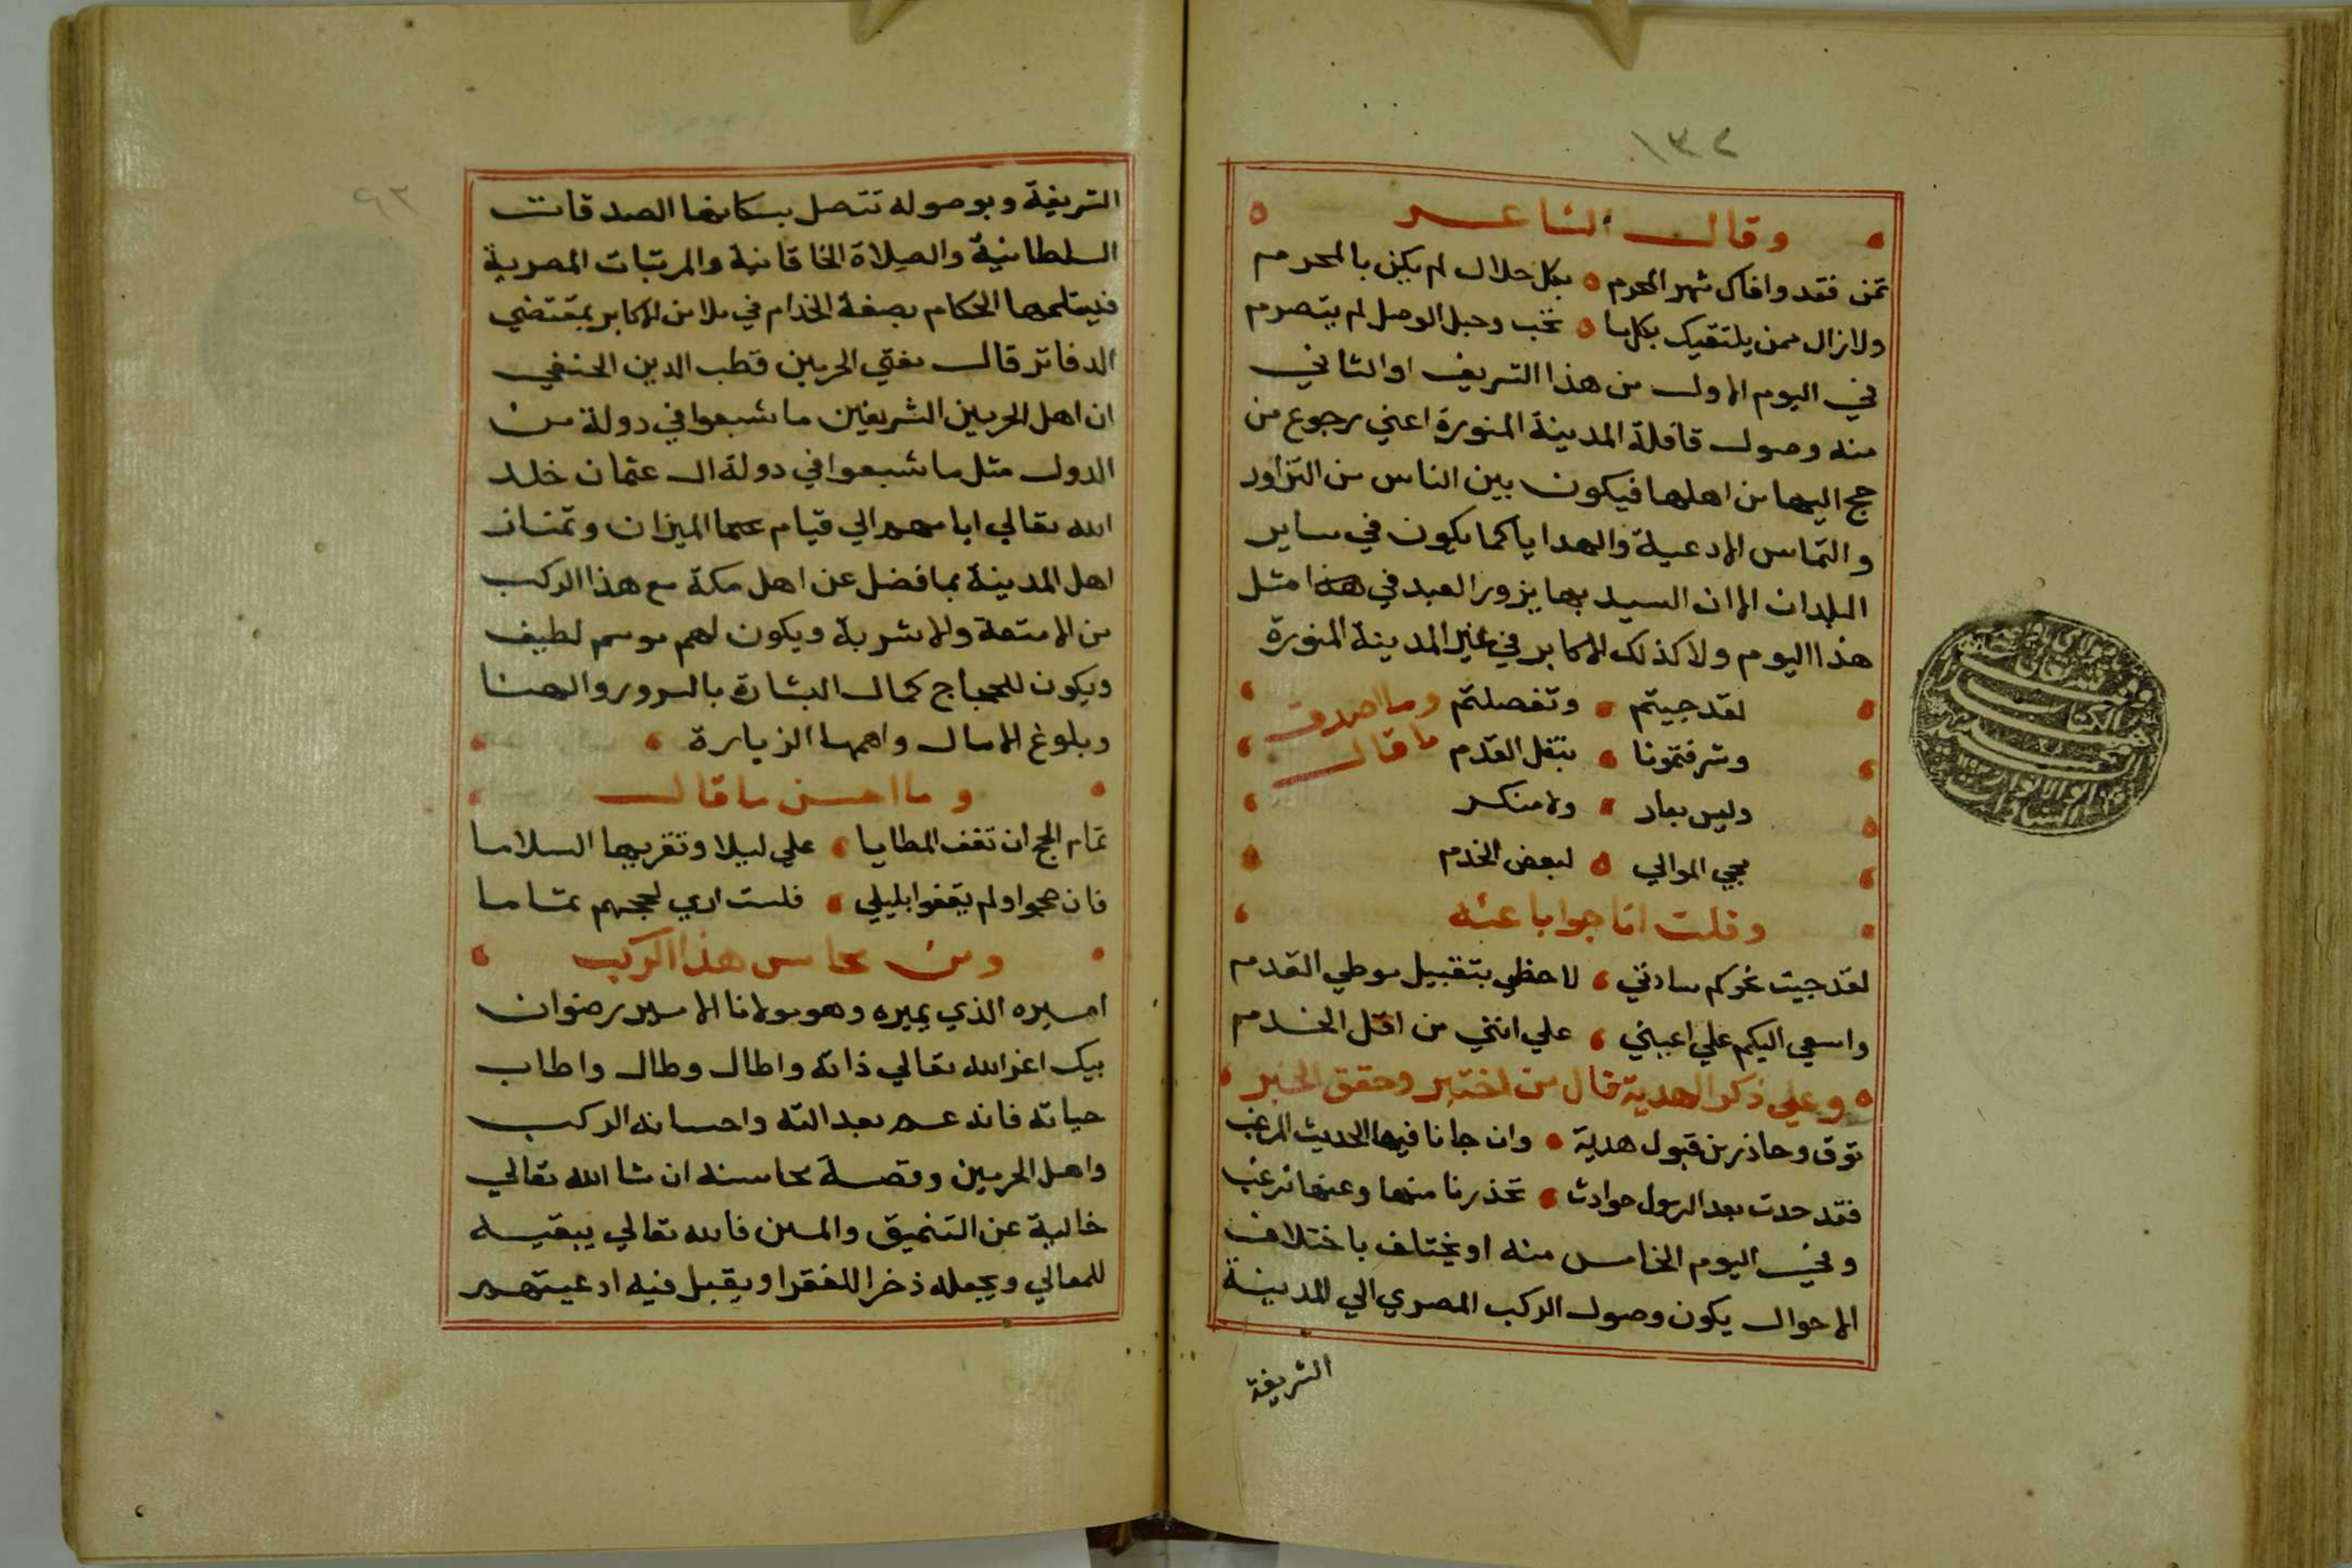 ١٣٢
وقال الشاعر
تمن فقد وافاك شهر المحرم بكل حلال لم يكن بالمحرم
ولازال ممن يلتقيك بكل ما تحب وحبل الوصل لم يتصرم
في اليوم الاول من هذا الشريف او الثاني
منه وصول قافلة المدينة المنورة اعني رجوع من
حج اليها من اهلها فيكون بين الناس من التزاور
والتماس الادعية والهدايا كما يكون في ساير
البلدان الا ان السيد بها يزور العبد في هذا مثل
هذا اليوم ولا كذلك الاكابر في غير المدينة المنورة
لقد جيتم وتفضلتم وما اصدق
وشرفتمونا بنقل القدم ما قال
وليس بعار ولا منكر
مجي الموالي لبعض الخدم
وقلت انا جوابا عنه
لقد جيت نحوكم سادتي لاحظي بتقبيل موطي القدم
واسعي اليكم علي اعيني علي انني من اقل الخدم
وعلي ذكر الهدية قال من اختبر وحقق الخبر
توق وحاذر من قبول هدية وان جانا فيها الحديث المرغب
فقد حدت بعد الرسول حوادث تحذرنا منها وعنها ترغب
وفي اليوم الخامس منه او يختلف باختلاف
الاحوال يكون وصول الركب المصري الي المدينة
الشريفة
٩٣
الشريفة وبوصوله تتصل بسكانها الصدقات
السلطانية والصلاة الخاقانية والمرتبات المصرية
فيتلمها الحكام بصفة الخدام في ملا من الاكابر بمقتضي
الدفاتر قال مفتي الحرمين قطب الدين الحنفي
ان اهل الحرمين الشريفين ما شبعوا في دولة من
الدول مثل ما شبعوا في دولة ال عثمان خلد
الله تعالي ايامهم الي قيام الميزان وتمتاز
اهل المدينة بما فضل عن اهل مكة مع هذا الركب
من الامتعة والاشربة ويكون لهم موسم لطيف
ويكون للحجاج كمال البشارة بالسرور والهنا
وبلوغ الامال واهمها الزيارة
وما احسن ما قال
تمام الحج ان تقف المطايا علي ليلا وتقريها السلاما
فان حجوا ولم يقفوا بليلي فلست اري لحجهم تماما
ومن محاسن هذا الركب
اميره الذي يميره وهو مولانا الامير رضوان
بيك اعز الله تعالي ذاته واطال وطال واطاب
حياته فانه عم بعدالته واحسانه الركب
واهل الحرمين وقصة محاسنه ان شا الله تعالي
خالية عن التنميق والمين فالله تعالي يبقيه
للمعالي ويجعله ذخرا للفقرا ويقبل فيه ادعيتهم